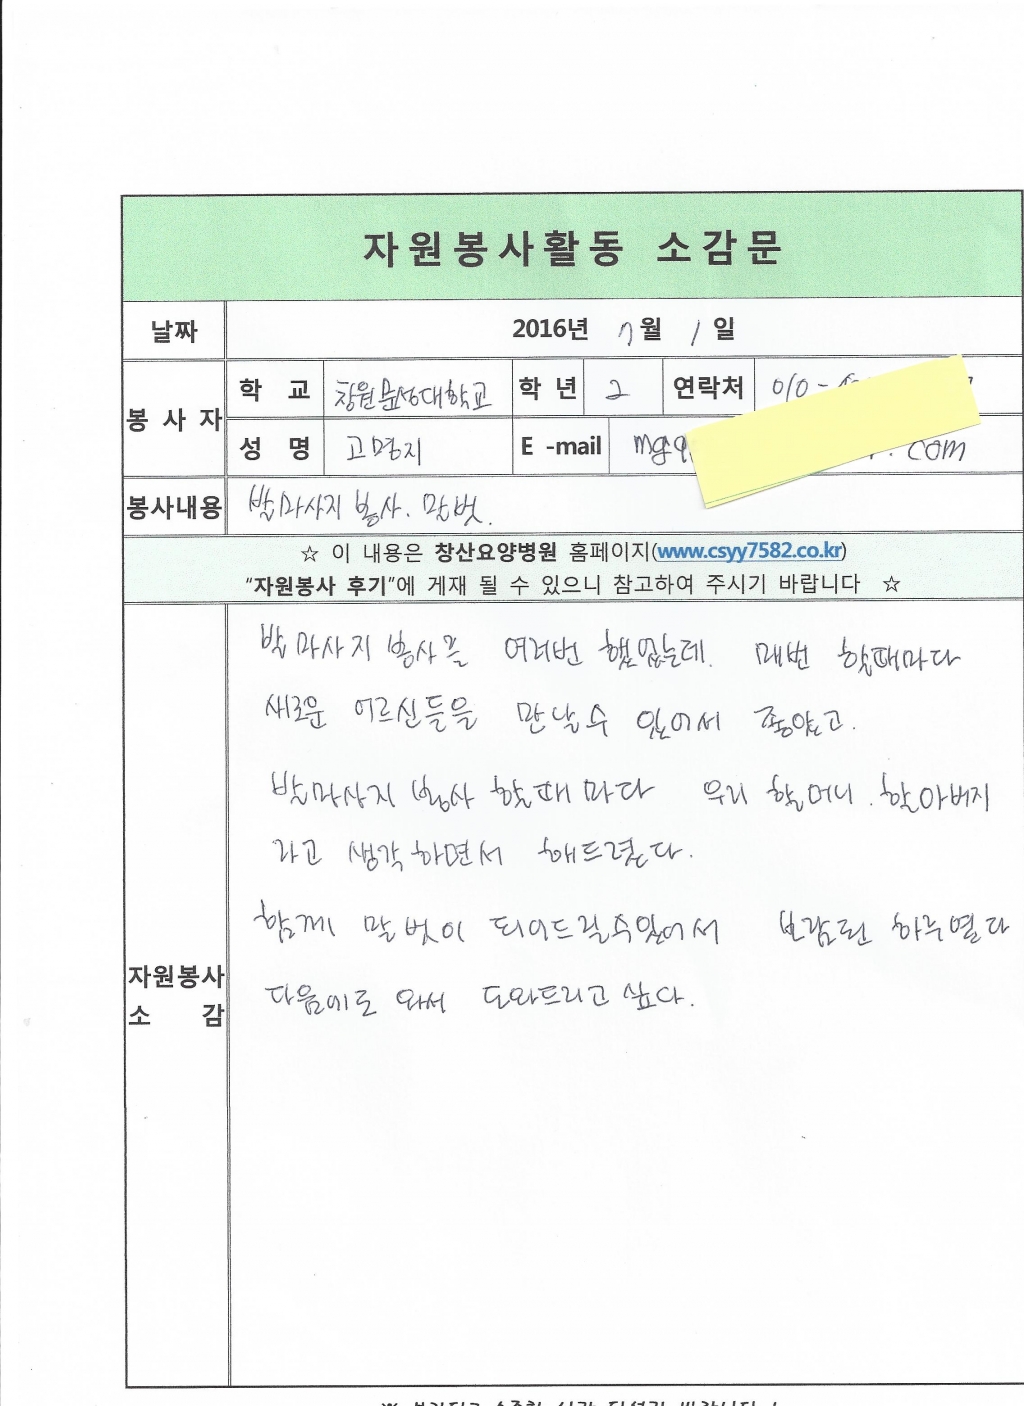 자원봉사활동 소감문
날짜 2016년 7월 1일
봉사자 학 교 창원문성대학교 학년 2 연락처 010-
성 명 고명지 E-mail mg9 .com
봉사내용 발마사지 봉사. 말벗.
☆ 이 내용은 창산요양병원 홈페이지(www.csyy7582.co.kr)
"자원봉사 후기"에 게재 될 수 있으니 참고하여 주시기 바랍니다 ☆
발마사지 봉사를 여러번 했었는데. 매번 할때마다
새로운 어르신들을 만날수 있어서 좋았고.
발마사지 봉사 할때 마다 우리 할머니. 할아버지
라고 생각하면서 해드렸다.
함께 말벗이 되어드릴수있어서 보람된 하루였다
자원봉사
다음에도 와서 도와드리고 싶다.
소 감